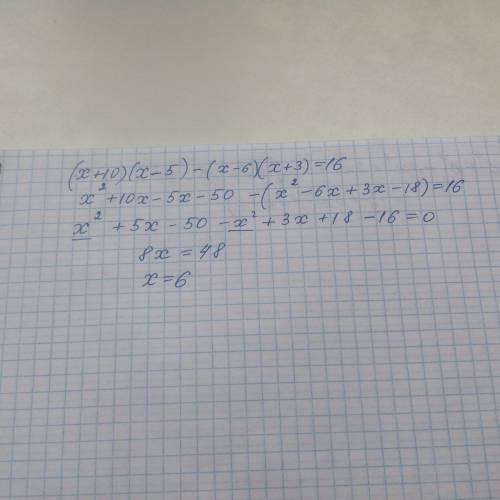 (x+10)(x-5)-(x-6)(x+3)=16
x²+10x-5x-50 -(x²-6x+3x-18)=16
x²+5x-50-x²+3x+18-16=0
8x=48
x=6